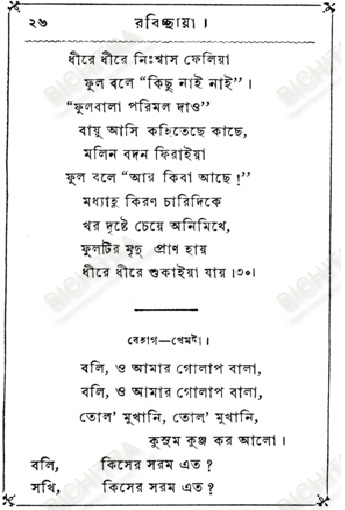 ২৬ রবিচ্ছায়া।
ধীরে ধীরে নিঃশ্বাস ফেলিয়া
ফুল বলে “কিছু নাই নাই”।
“ফুলবালা পরিমল দাও”
বায়ু আসি কহিতেছে কাছে,
মলিন বদন ফিরাইয়া
ফুল বলে “আর কিবা আছে!”
মধ্যাহ্ন কিরণ চারিদিকে
খর দৃষ্টে চেয়ে অনিমিখে,
ফুলটির মৃদু প্রাণ হায়
ধীরে ধীরে শুকাইয়া যায়।৩০।
বেহাগ—খেমটা।
বলি, ও আমার গোলাপ বালা,
বলি, ও আমার গোলাপ বালা,
তোল’ মুখানি, তোল’ মুখানি,
কুসুম কুঞ্জ কর আলো।
বলি, কিসের সরম এত?
সখি, কিসের সরম এত?
BICHITRA